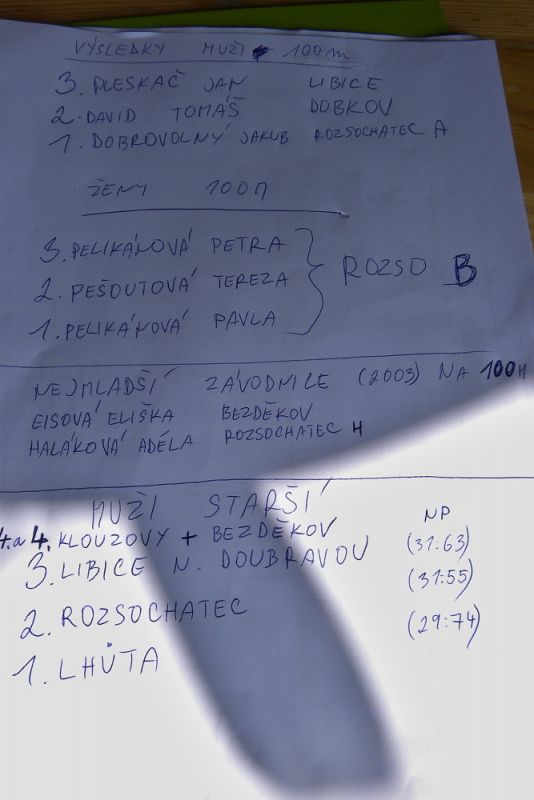 VÝSLEDKY MUŽI 100m
3. PLESKAČ JAN LIBICE
2. DAVID TOMÁŠ DOBKOV
1. DOBROVOLNÝ JAKUB ROZSOCHATEC A
ŽENY 100M
3. PELIKÁNOVÁ PETRA
2. PEŠOUTOVÁ TEREZA
1. PELIKÁNOVÁ PAVLA
ROZSO B
NEJMLADŠÍ ZÁVODNICE (2003) NA 100M
EISOVÁ ELIŠKA BEZDĚKOV
HALÁKOVÁ ADÉLA ROZSOCHATEC H
MUŽI STARŠÍ
4. a 4. KLOUZOVY + BEZDĚKOV NP
3. LIBICE N. DOUBRAVOU (31:63)
(31:55)
2. ROZSOCHATEC (29:74)
1. LHŮTA